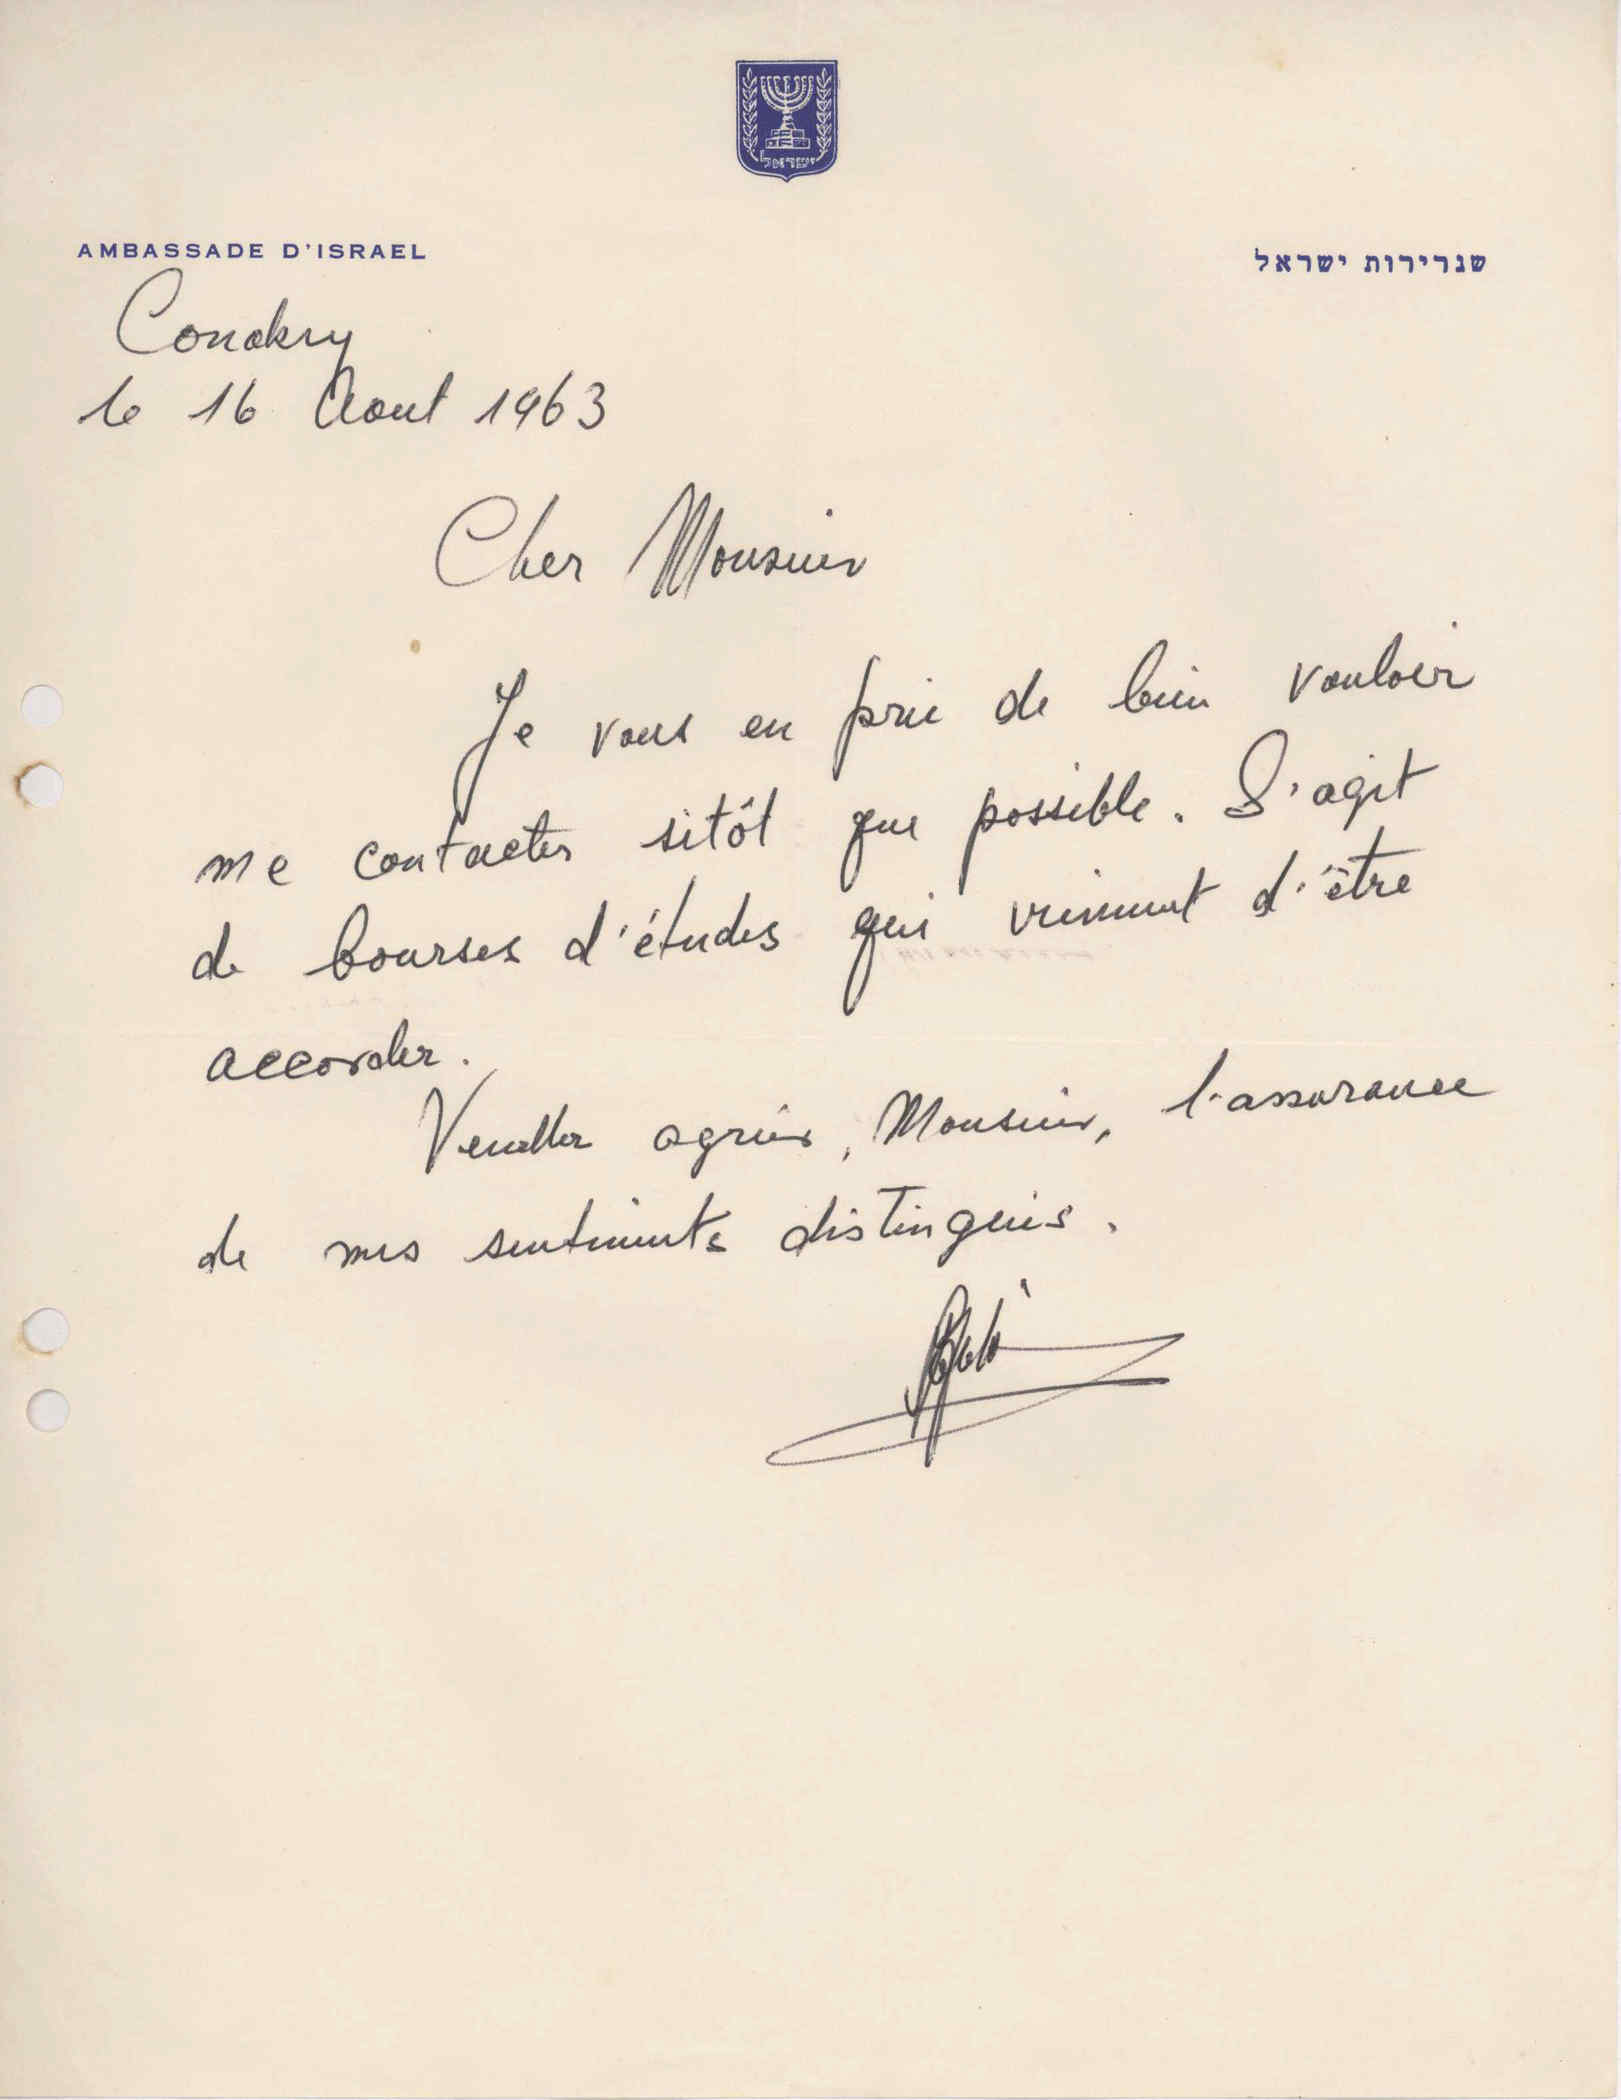 ישראל
AMBASSADE D'ISRAEL
שגרירות ישראל
Conakry
le 16 Aout 1963
Cher Monsieur
Je vous en prie de bien vouloir
me contacter sitôt que possible. S'agit
de bourses d'études qui viennent d'être
accorder.
Veuiller agréer, Monsieur, l'assurance
de mes sentiments distingués.